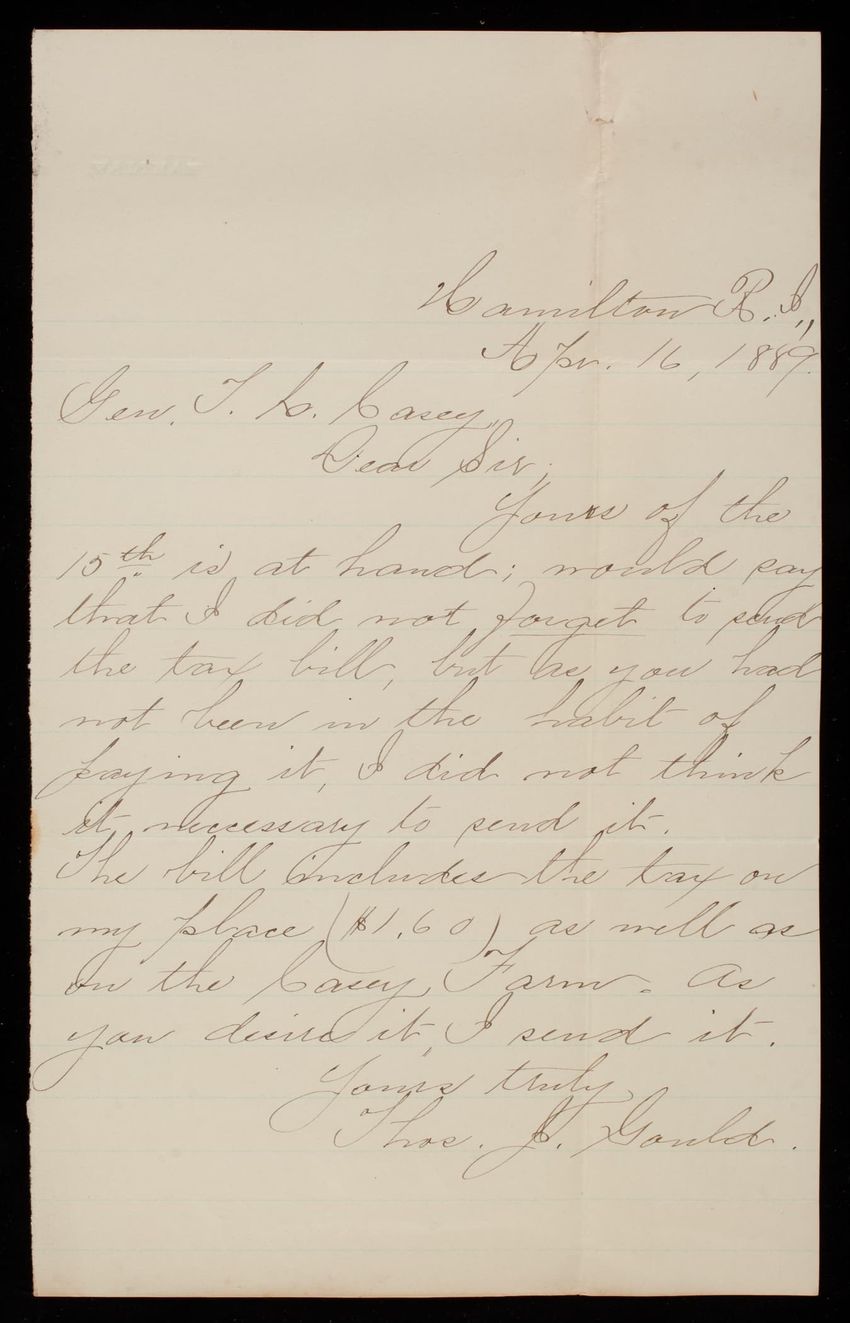 Hamilton R. I.,
Apr. 16, 1889.
Gen. T. L. Casey,
Dear Sir;
Yours of the
15th is at hand; would say
that I did not forget to send
the tax bill, but as you had
not been in the habit of
paying it, I did not think
it neccessary to send it.
The bill includes the tax on
my place ($1.60) as well as
on the Casey Farm. As
you desire it, I send it.
Yours truly,
Thos. J. Gould.